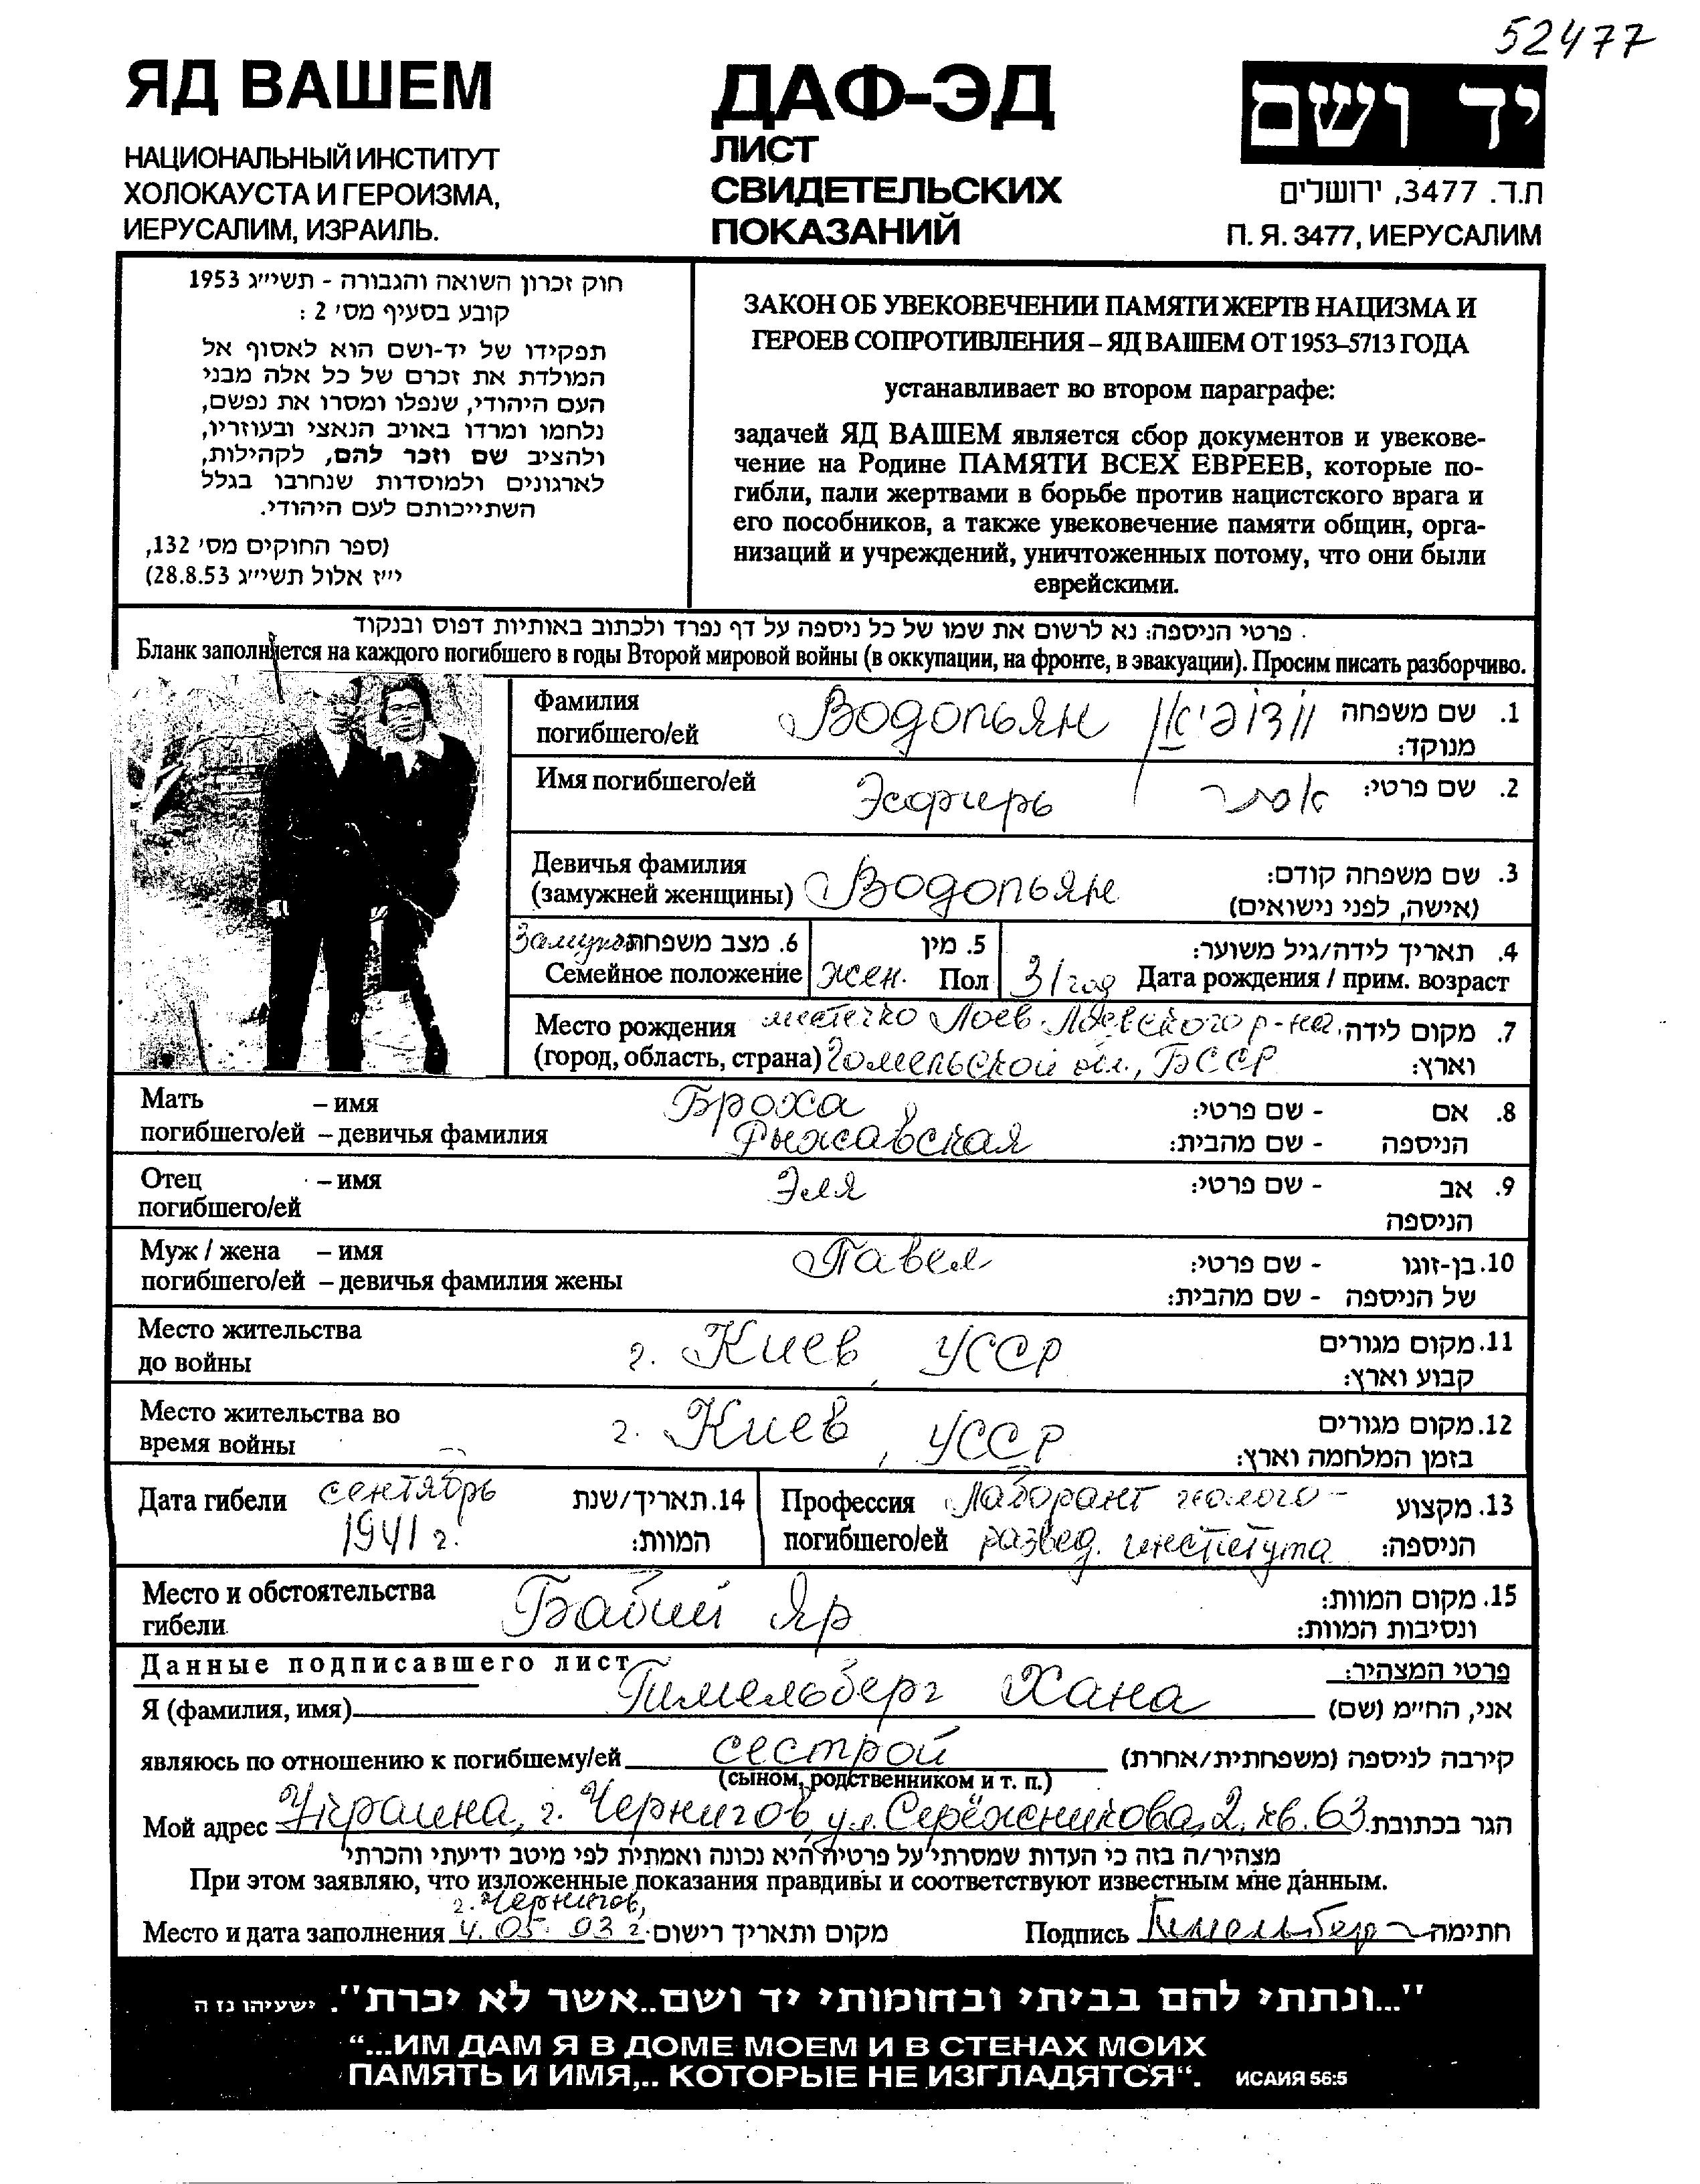 52477
ЯД ВАШЕМ
НАЦИОНАЛЬНЫЙ ИНСТИТУТ
ХОЛОКАУСТА И ГЕРОИЗМА,
ИЕРУСАЛИМ, ИЗРАИЛЬ.
ДАФ-ЭД
ЛИСТ
СВИДЕТЕЛЬСКИХ
ПОКАЗАНИЙ
יד ושם
ת.ד. 3477, ירושלים
П. Я. 3477, ИЕРУСАЛИМ
חוק זכרון השואה והגבורה - תשי״ג 1953
קובע בסעיף מס׳ 2 :
תפקידו של יד-ושם הוא לאסוף אל
המולדת את זכרם של כל אלה מבני
העם היהודי, שנפלו ומסרו את נפשם,
נלחמו ומרדו באויב הנאצי ובעוזריו,
ולהציב שם וזכר להם, לקהילות,
לארגונים ולמוסדות שנחרבו בגלל
השתייכותם לעם היהודי.
(ספר החוקים מס׳ 132,
י״ז אלול תשי״ג 28.8.53)
ЗАКОН ОБ УВЕКОВЕЧЕНИИ ПАМЯТИ ЖЕРТВ НАЦИЗМА И
ГЕРОЕВ СОПРОТИВЛЕНИЯ – ЯД ВАШЕМ ОТ 1953–5713 ГОДА
устанавливает во втором параграфе:
задачей ЯД ВАШЕМ является сбор документов и увекове-
чение на Родине ПАМЯТИ ВСЕХ ЕВРЕЕВ, которые по-
гибли, пали жертвами в борьбе против нацистского врага и
его пособников, а также увековечение памяти общин, орга-
низаций и учреждений, уничтоженных потому, что они были
еврейскими.
פרטי הניספה: נא לרשום את שמו של כל ניספה על דף נפרד ולכתוב באותיות דפוס ובנקוד
Бланк заполняется на каждого погибшего в годы Второй мировой войны (в оккупации, на фронте, в эвакуации). Просим писать разборчиво.
Фамилия Водопьян וודופיאן שם משפחה .1
погибшего/ей מנוקד:
Имя погибшего/ей Эсфирь אסתר שם פרטי: .2
Девичья фамилия שם משפחה קודם: .3
(замужней женщины) Водопьян (אישה, לפני נישואים)
Замужем 6. מצב משפחתי 5. מין תאריך לידה/גיל משוער: .4
Семейное положение жен. Пол 31 год Дата рождения / прим. возраст
Место рождения местечко Лоев Лоевского р-на, מקום לידה .7
(город, область, страна) Гомельской обл., БССР וארץ:
Мать – имя Броха אם - שם פרטי: .8
погибшего/ей – девичья фамилия Рыжавская הניספה - שם מהבית:
Отец – имя Эля אב - שם פרטי: .9
погибшего/ей הניספה
Муж / жена – имя Павел 10.בן-זוגו - שם פרטי:
погибшего/ей – девичья фамилия жены של הניספה - שם מהבית:
Место жительства г. Киев, УССР 11.מקום מגורים
до войны קבוע וארץ:
Место жительства во г. Киев, УССР 12.מקום מגורים
время войны בזמן המלחמה וארץ:
Дата гибели сентябрь 14.תאריך/שנת
1941 г. המוות:
Профессия Лаборант геолого- 13.מקצוע
погибшего/ей развед. института הניספה:
Место и обстоятельства Бабий Яр 15.מקום המוות:
гибели ונסיבות המוות:
Данные подписавшего лист פרטי המצהיר:
Я (фамилия, имя) Гимельберг Хана אני, החי״מ (שם)
являюсь по отношению к погибшему/ей сестрой קירבה לניספה (משפחתית/אחרת)
(сыном, родственником и т. п.)
Мой адрес Украина, г. Чернигов, ул. Серёжникова, 2, кв. 63 הגר בכתובת
מצהיר/ה בזה כי העדות שמסרתי על פרטיה היא נכונה ואמתית לפי מיטב ידיעתי והכרתי
При этом заявляю, что изложенные показания правдивы и соответствуют известным мне данным.
г. Чернигов,
Место и дата заполнения 4.05.93 г. מקום ותאריך רישום Подпись Гимельберг חתימה
"...ונתתי להם בביתי ובחומותי יד ושם..אשר לא יכרת". ישעיהו נז ה
“...ИМ ДАМ Я В ДОМЕ МОЕМ И В СТЕНАХ МОИХ
ПАМЯТЬ И ИМЯ,.. КОТОРЫЕ НЕ ИЗГЛАДЯТСЯ“. ИСАИЯ 56:5